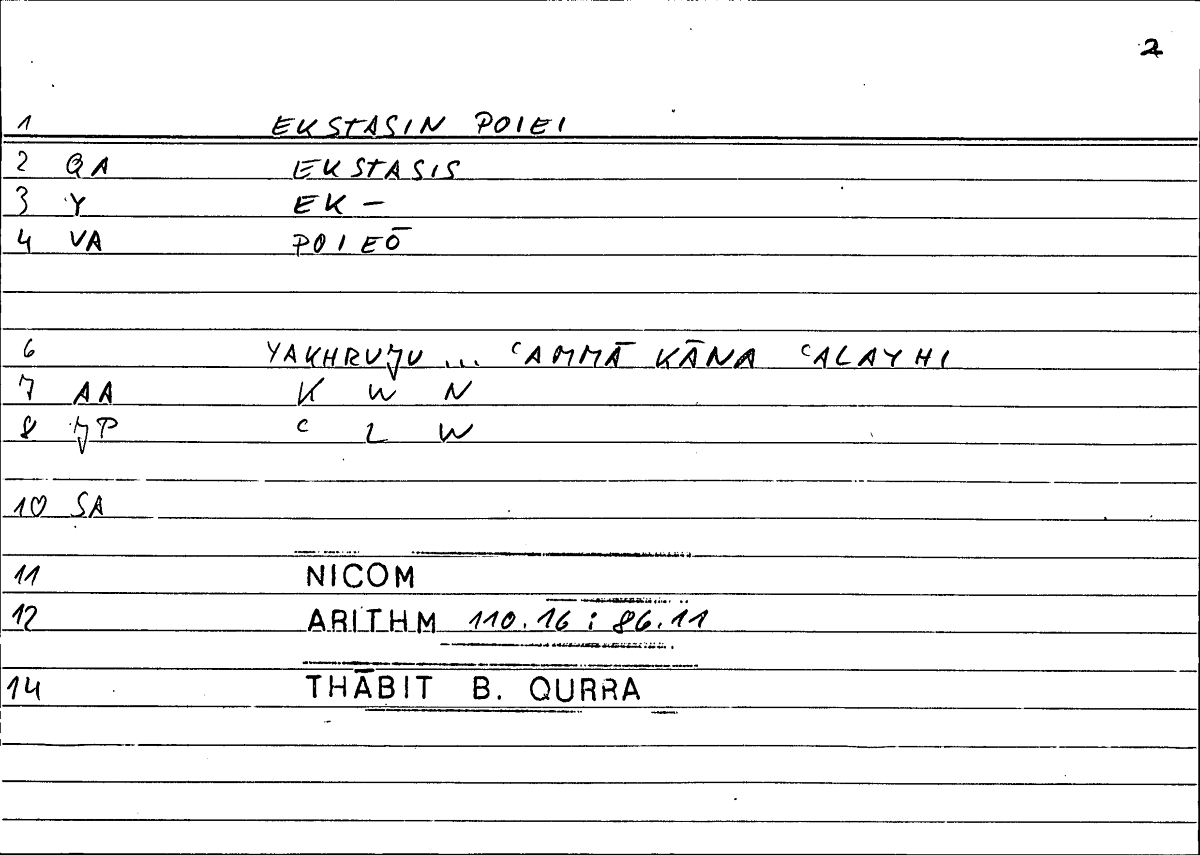 2
1 EKSTASIN POIEI
2 QA EKSTASIS
3 Y EK –
4 VA POIEŌ
6 YAKHRUJU ... ʿAMMĀ KĀNA ʿALAYHI
7 AA K W N
8 JP ʿ L W
10 SA
11 NICOM
12 ARITHM 110.16 : 86.11
14 THĀBIT B. QURRA